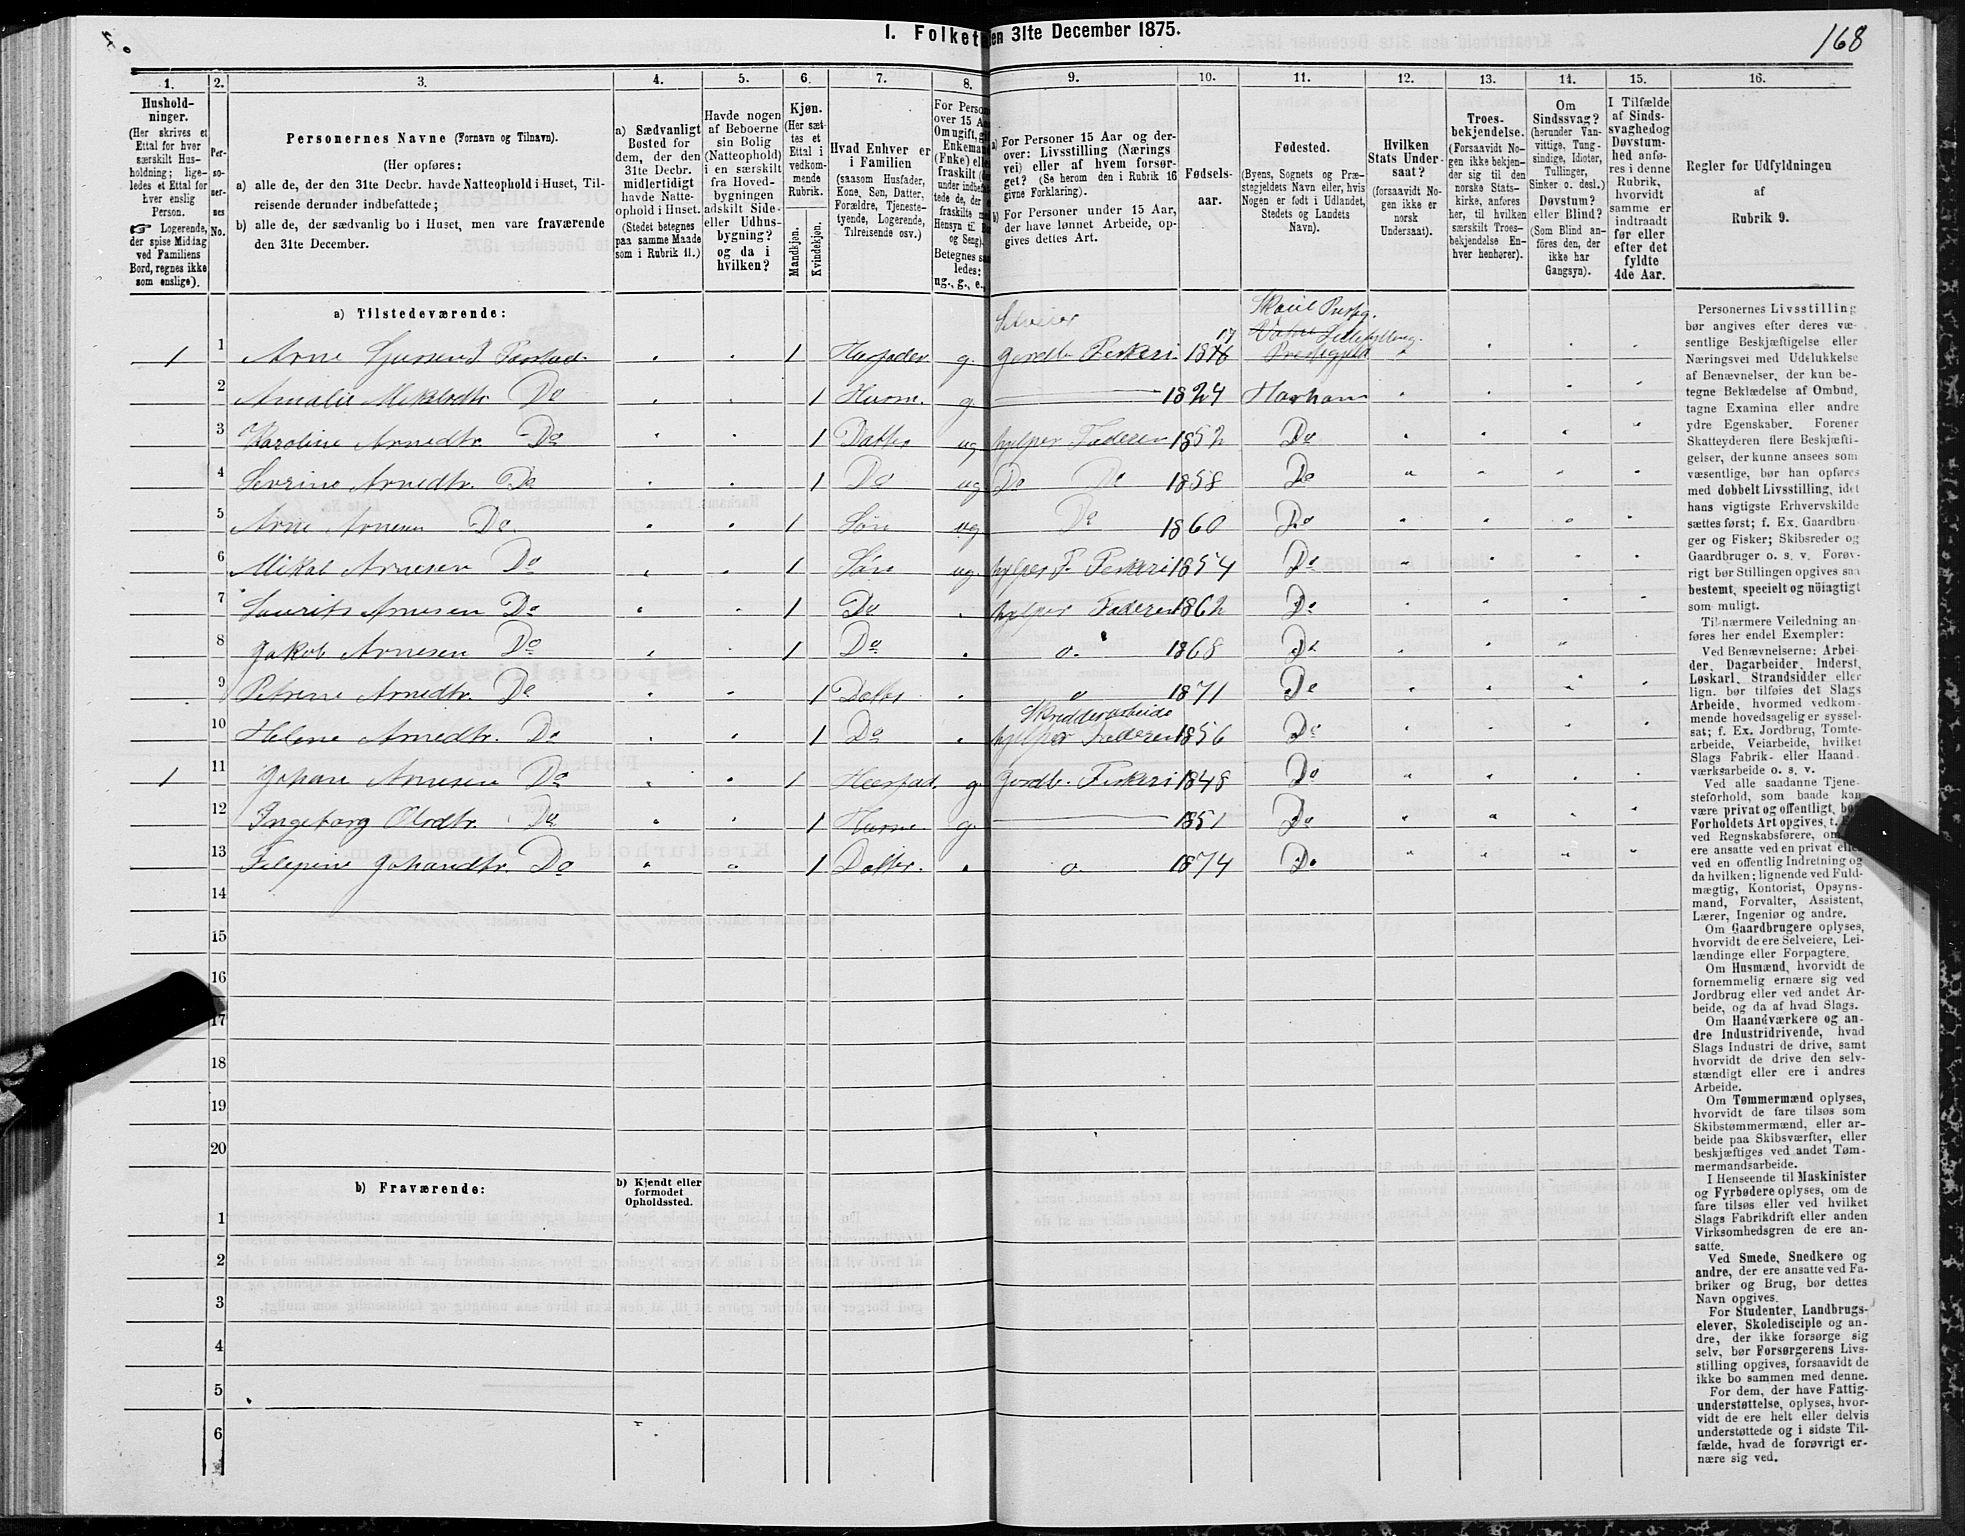 168
1. Folket en 31te December 1875.
1. 2. 3. 4. 5. 6. 7. 8. 9. 10. 11. 12. 13. 14. 15. 16.
Hushold-
ninger.
(Her skrives et
Ettal for hver
særskilt Hus-
holdning; lige-
ledes et Ettal for
hver enslig
Person.
☞ Logerende,
der spise Middag
ved Familiens
Bord, regnes ikke
som enslige).
Per-
so-
ner-
nes
No.
Personernes Navne (Fornavn og Tilnavn).
(Her opføres:
a) alle de, der den 31te Decbr. havde Natteophold i Huset, Til-
reisende derunder indbefattede;
b) alle de, der sædvanlig bo i Huset, men vare fraværende
den 31te December.
a) Sædvanligt
Bosted for
dem, der den
31te Decbr.
midlertidigt
havde Natte-
ophold i Huset.
(Stedet betegnes
paa samme Maade
som i Rubrik 11.)
Havde nogen
af Beboerne
sin Bolig
(Natteophold)
i en særskilt
fra Hoved-
bygningen
adskilt Side-
eller Udhus-
bygning?
og da i
hvilken?
Kjøn.
(Her sæt-
tes et
Ettal i
vedkom-
mende
Rubrik.
Mandkjøn.
Kvindekjøn.
Hvad Enhver er
i Familien
(saasom Husfader,
Kone, Søn, Datter,
Forældre, Tjeneste-
tyende, Logerende,
Tilreisende osv.)
For Person
over 15 Aar
Om ugift, gi
Enkeman
(Enke) elle
fraskilt
under indbefat-
tede de, der
fraskilte
Hensyn til
og Seng).
Betegnes sa
ledes:
ug., g., e.,
a) For Personer 15 Aar og der-
over: Livsstilling (Nærings
vei) eller af hvem forsør-
get? (Se herom den i Rubrik 16
givne Forklaring).
b) For Personer under 15 Aar,
der have lønnet Arbeide, op-
gives dettes Art.
Fødsels-
aar.
Fødested.
(Byens, Sognets og Præ-
stegjeldets Navn eller, hvis
Nogen er født i Udlandet,
Stedets og Landets
Navn).
Hvilken
Stats Under-
saat?
(forsaavidt No-
gen ikke er
norsk
Undersaat).
Troes-
bekjendelse.
(Forsaavidt No-
gen ikke bekjen-
der sig til den
norske Stats-
kirke, anføres
her, til hvilken
særskilt Troes-
bekjendelse En-
hver henhører).
Om
Sindssvag?
(herunder Van-
vittige, Tung-
sindige, Idioter,
Tullinger,
Sinker o. desl.)
Døvstum?
eller Blind?
(Som Blind an-
føres den, der
ikke har
Gangsyn).
I Tilfælde
af Sinds-
svaghed og
Døvstum-
hed anfø-
res i denne
Rubrik,
hvorvidt
samme er
indtraadt
før eller
efter det
fyldte
4de Aar.
Regler for Udfyldningen
af
Rubrik 9.
a) Tilstedeværende:
1 1 Arne 1 Husfader g. Selveier Gordb. Fiskeri 18 17
2 Amalie Do 1 Husm. g 1824 Harham
3 Karoline Arnedtr. Do 1 Datter ug hjelper Faderen 1852 Do
4 Sevrine Arnedtr. Do 1 Do ug Do Do 1858 Do
5 Arne Arnesen Do 1 Søn ug Do 1860 Do
6 Mikal Arnesen Do 1 Søn ug hjelper F. Fiskeri 1854 Do
7 Laurits Arnesen Do 1 Do hjelper Faderen 1862 Do
8 Jakob Arnesen Do 1 Do o. 1868 Do
9 Petrine Arnedtr. Do 1 Datter o 1871 Do
10 Helene Arnedtr. Do 1 Do Skrædderarbeide hjelper Faderen 1856 Do
1 11 Johan Arnesen Do 1 Husfad. g. Gordb. Fiskeri 1848 Do
12 Ingeborg Olsdtr. Do 1 Husm. g. 1851 Do
13 Filepine Johandtr. Do 1 Datter o. 1874 Do
14
15
16
17
18
19
20
b) Fraværende:
b) Kjendt eller
formodet
Opholdssted.
1
2
3
4
5
6
Personernes Livsstilling
bør angives efter deres væ-
sentlige Beskjæftigelse eller
Næringsvei med Udelukkelse
af Benævnelser, der kun be-
tegne Beklædelse af Ombud,
tagne Examina eller andre
ydre Egenskaber. Forener
Skatteyderen flere Beskjæfti-
gelser, der kunne ansees som
væsentlige, bør han opføres
med dobbelt Livsstilling, idet
hans vigtigste Erhvervskilde
sættes først; f. Ex. Gaardbru-
ger og Fisker; Skibsreder og
Gaardbruger o. s. v. Forøv-
rigt bør Stillingen opgives saa
bestemt, specielt og nøiagtigt
som muligt.
Til nærmere Veiledning an-
føres her endel Exempler:
Ved Benævnelserne: Arbei-
der, Dagarbeider, Inderst,
Løskarl, Strandsidder eller
lign. bør tilføies det Slags
Arbeide, hvormed vedkom-
mende hovedsagelig er syssel-
sat; f. Ex. Jordbrug, Tomte-
arbeide, Veiarbeide, hvilket
Slags Fabrik- eller Haand-
værksarbeide o. s. v.
Ved alle saadanne Tjene-
steforhold, som baade kan
være privat og offentligt, bør
Forholdets Art opgives, t.
ved Regnskabsførere, om
ere ansatte ved en privat elle
ved en offentlig Indretning og
da hvilken; lignende ved Fuld-
mægtig, Kontorist, Opsyns-
mand, Forvalter, Assistent,
Lærer, Ingeniør og andre.
Om Gaardbrugere oplyses,
hvorvidt de ere Selveiere, Lei-
lændinge eller Forpagtere.
Om Husmænd, hvorvidt de
fornemmelig ernære sig ved
Jordbrug eller ved andet Ar-
beide, og da af hvad Slags.
Om Haandværkere og an-
dre Industridrivende, hvad
Slags Industri de drive, samt
hvorvidt de drive den selv-
stændigt eller ere i andres
Arbeide.
Om Tømmermænd oplyses,
hvorvidt de fare tilsøs som
Skibstømmermænd, eller ar-
beide paa Skibsværfter, eller
beskjæftiges ved andet Tøm-
mermandsarbeide.
I Henseende til Maskinister
og Fyrbødere oplyses, om de
fare tilsøs eller ved hvilket
Slags Fabrikdrift eller anden
Virksomhedsgren de ere an-
satte.
Ved Smede, Snedkere og
andre, der ere ansatte ved Fa-
briker og Brug, bør dettes
Navn opgives.
For Studenter, Landbrugs-
elever, Skoledisciple og an-
dre, der ikke forsørge sig
selv, bør Forsørgerens Livs-
stilling opgives, forsaavidt de
ikke bo sammen med denne.
For dem, der have Fattig-
understøttelse, oplyses, hvor-
vidt de ere helt eller delvis
understøttede og i sidste Til-
fælde, hvad de forøvrigt er-
nære sig ved.